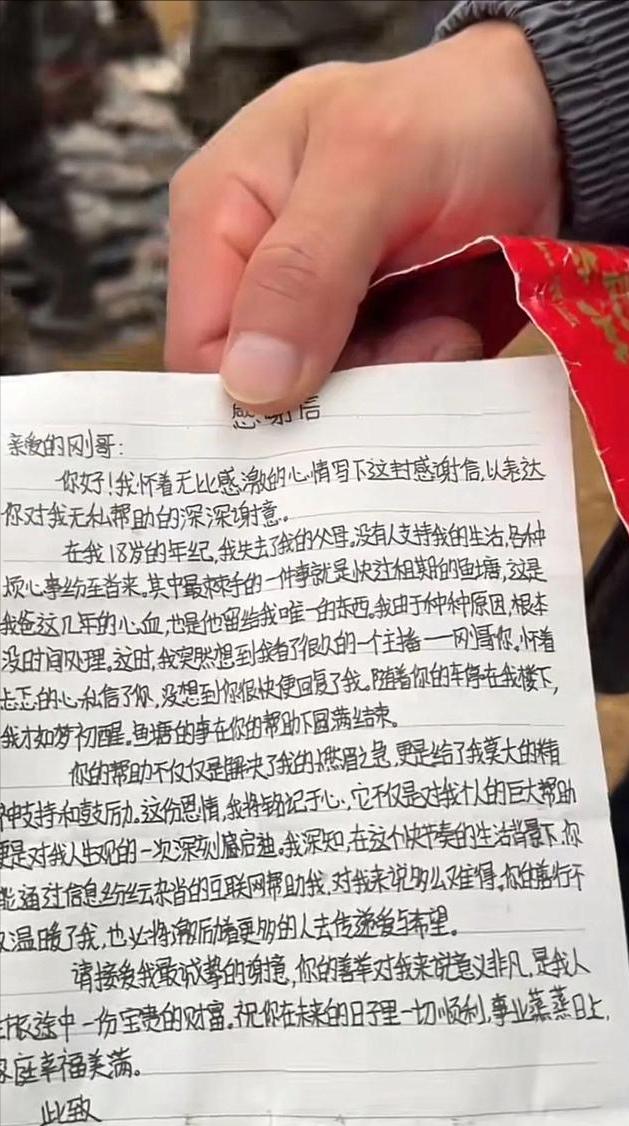 感谢信
亲爱的刚哥:
你好!我怀着无比感激的心情写下这封感谢信,以表达
你对我无私帮助的深深谢意。
在我18岁的年纪,我失去了我的父母。没有人支持我的生活,各种
烦心事纷至沓来。其中最棘手的一件事就是快过租期的鱼塘,这是
我爸这几年的心血,也是他留给我唯一的东西。我由于种种原因,根本
没时间处理。这时,我突然想到我看了很久的一个主播——刚哥你。怀着
忐忑的心私信了你,没想到你很快便回复了我。随着你的车停在我楼下,
我才如梦初醒。鱼塘的事在你的帮助下圆满结束。
你的帮助不仅仅是解决了我的燃眉之急,更是给了我莫大的精
神支持和鼓励。这份恩情,我将铭记于心,它不仅是对我个人的巨大帮助
更是对我人生观的一次深刻启迪。我深知,在这个快节奏的生活背景下,你
能通过信息纷纭杂沓的互联网帮助我,对我来说多么难得。你的善行不
仅温暖了我,也必将激励着更多的人去传递爱与希望。
请接受我最诚挚的谢意,你的善举对我来说意义非凡,是我人
生旅途中一份宝贵的财富。祝你在未来的日子里一切顺利,事业蒸蒸日上,
家庭幸福美满。
此致